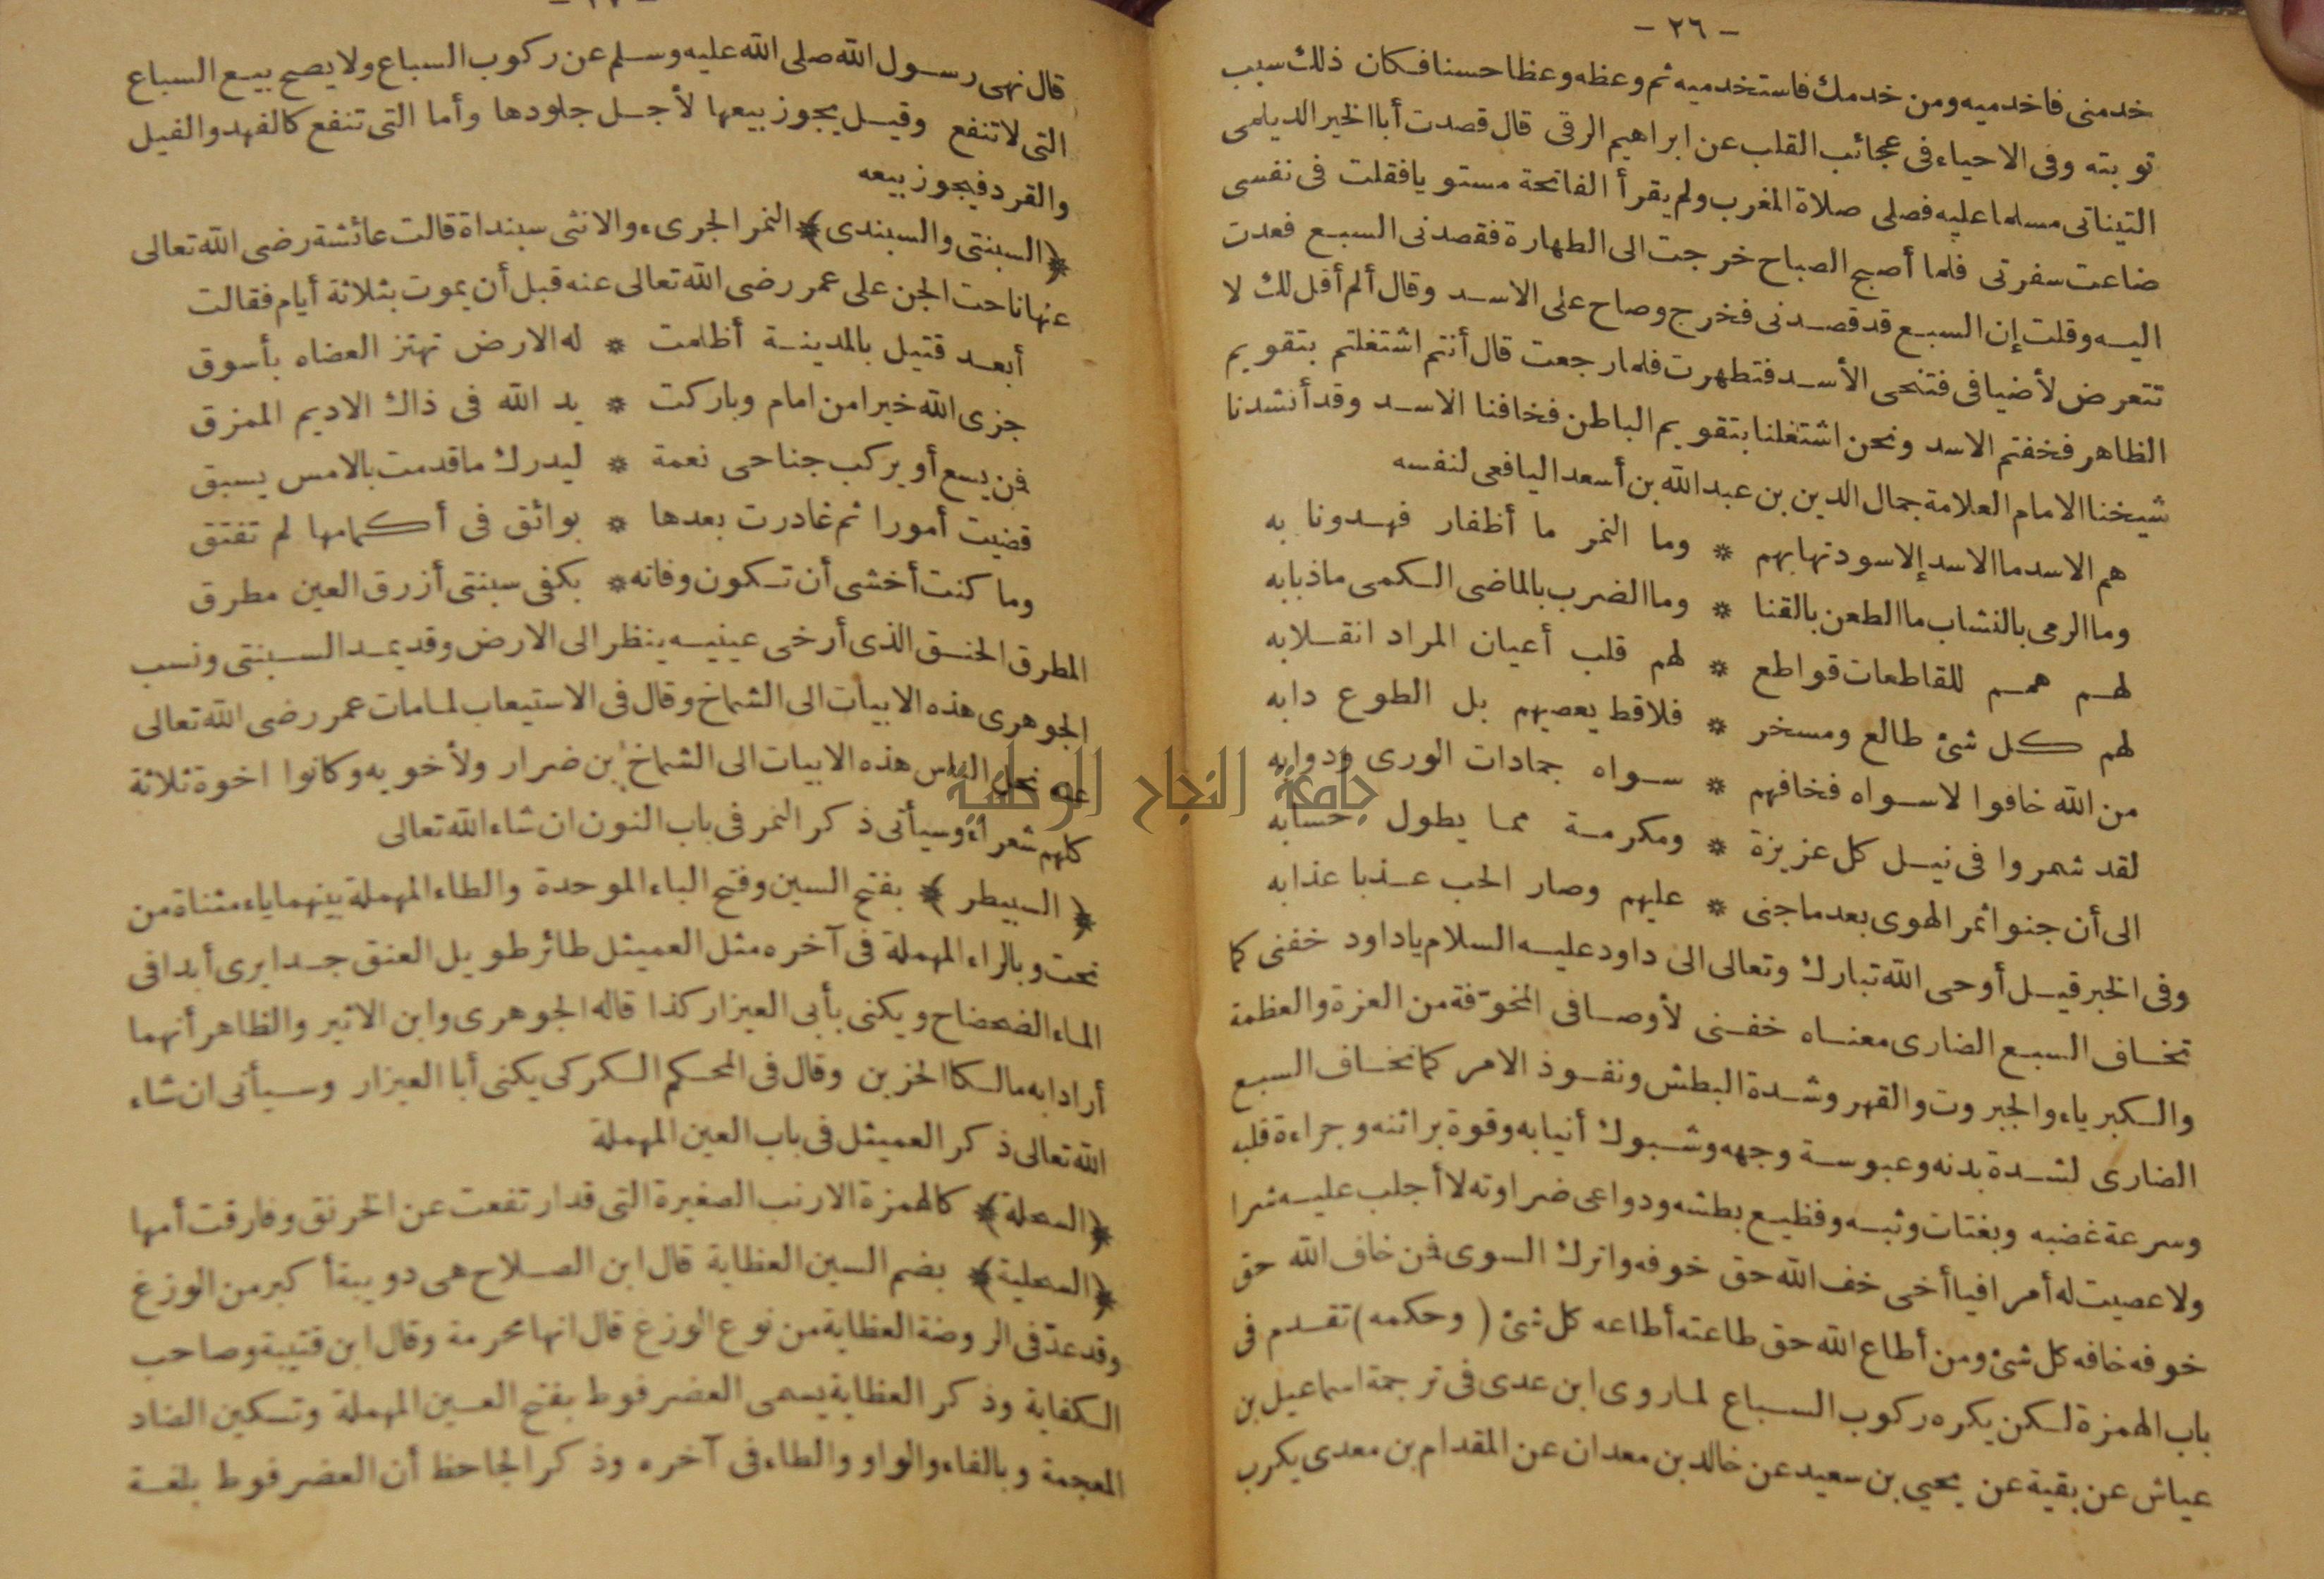 - ٢٦ -
خدمنى فاخدميه ومن خدمك فاستخدميه ثم وعظه وعظا حسنا فكان ذلك سبب
توبته وفى الاحياء فى عجائب القلب عن ابراهيم الرقى قال قصدت أبا الخير الديلمى
التيناتى مسلما عليه فصلى صلاة المغرب ولم يقرأ الفاتحة مستويا فقلت فى نفسى
ضاعت سفرتى فلما أصبح الصباح خرجت الى الطهارة فقصدنى السبع فعدت
اليه وقلت إن السبع قد قصدنى فخرج وصاح على الاسد وقال ألم أقل لك لا
تتعرض لأضيافى فتنحى الأسد فتطهرت فلما رجعت قال أنتم اشتغلتم بتقويم
الظاهر فخفتم الاسد ونحن اشتغلنا بتقويم الباطن فخافنا الاسد وقد أنشدنا
شيخنا الامام العلامة جمال الدين بن عبد الله بن أسعد اليافعى لنفسه
هم الاسد ما الاسد إلاسود تهابهم * وما النمر ما أظفار فهدونا به
وما الرمى بالنشاب ما الطعن بالقنا * وما الضرب بالماضى الكمى ماذبابه
لهم همم للقاطعات قواطع * لهم قلب أعيان المراد انقلابه
لهم كل شئ طالع ومسخر * فلاقط يعصيهم بل الطوع دابه
من الله خافوا لاسواه فخافهم * سواه جمادات الورى ودوابه
لقد شمروا فى نيل كل عزيزة * ومكرمة مما يطول حسابه
الى أن جنوا ثمر الهوى بعد ماجنى * عليهم وصار الحب عذبا عذابه
وفى الخبر قيل أوحى الله تبارك وتعالى الى داود عليه السلام ياداود خفنى كما
تخاف السبع الضارى معناه خفنى لأوصافى المخوّفة من العزة والعظمة
والكبرياء والجبروت والقهر وشدة البطش ونفوذ الامر كما تخاف السبع
الضارى لشدة بدنه وعبوسة وجهه وشبوك أنيابه وقوة براثنه وجراءة قلبه
وسرعة غضبه وبغتات وثبه وفظيع بطشه ودواعى ضراوته لا أجلب عليه شرا
ولا عصيت له أمرا فيا أخى خف الله حق خوفه واترك السوى فمن خاف الله حق
خوفه خافه كل شئ ومن أطاع الله حق طاعته أطاعه كل شئ ( وحكمه ) تقدم فى
باب الهمزة لكن يكره ركوب السباع لما روى ابن عدى فى ترجمة اسماعيل بن
عياش عن بقية عن يحيى بن سعيد عن خالد بن معدان عن المقدام بن معدى يكرب
- ٢٧ -
قال نهى رسول الله صلى الله عليه وسلم عن ركوب السباع ولا يصح بيع السباع
التى لا تنفع وقيل يجوز بيعها لأجل جلودها وأما التى تنفع كالفهد والفيل
والقرد فيجوز بيعه
﴿ السبنتى والسبندى ﴾ النمر الجرىء والانثى سبنداة قالت عائشة رضى الله تعالى
عنها ناحت الجن على عمر رضى الله تعالى عنه قبل أن يموت بثلاثة أيام فقالت
أبعد قتيل بالمدينة أظلمت * له الارض تهتز العضاه بأسوق
جزى الله خيرا من امام وباركت * يد الله فى ذاك الاديم الممزق
فمن يسع أو يركب جناحى نعمة * ليدرك ماقدمت بالامس يسبق
قضيت أمورا ثم غادرت بعدها * بوائق فى أكمامها لم تفتق
وما كنت أخشى أن تكون وفاته * بكفى سبنتى أزرق العين مطرق
المطرق الحنق الذى أرخى عينيه ينظر الى الارض وقد يمد السبنتى ونسب
الجوهرى هذه الابيات الى الشماخ وقال فى الاستيعاب لما مات عمر رضى الله تعالى
عنه نحل الناس هذه الابيات الى الشماخ بن ضرار ولأخويه وكانوا اخوة ثلاثة
كلهم شعراء وسيأتى ذكر النمر فى باب النون ان شاء الله تعالى
﴿ السبيطر ﴾ بفتح السين وفتح الباء الموحدة والطاء المهملة بينهما ياء مثناة من
تحت وبالراء المهملة فى آخره مثل العميثل طائر طويل العنق جدا يرى أبدا فى
الماء الضحضاح ويكنى بأبى العيزار كذا قاله الجوهرى وابن الاثير والظاهر أنهما
أرادا به مالكا الحزين وقال فى المحكم الكركى يكنى أبا العيزار وسيأتى ان شاء
الله تعالى ذكر العميثل فى باب العين المهملة
﴿ السحلة ﴾ كالهمزة الارنب الصغيرة التى قد ارتفعت عن الخرنق وفارقت أمها
﴿ السحلية ﴾ بضم السين العظاية قال ابن الصلاح هى دويبة أكبر من الوزغ
وقد عدّ فى الروضة العظاية من نوع الوزغ قال انها محرمة وقال ابن قتيبة وصاحب
الكفاية وذكر العظاية يسمى العضرفوط بفتح العين المهملة وتسكين الضاد
المعجمة وبالفاء والواو والطاء فى آخره وذكر الجاحظ أن العضرفوط بلغة
جامعة النجاح الوطنية